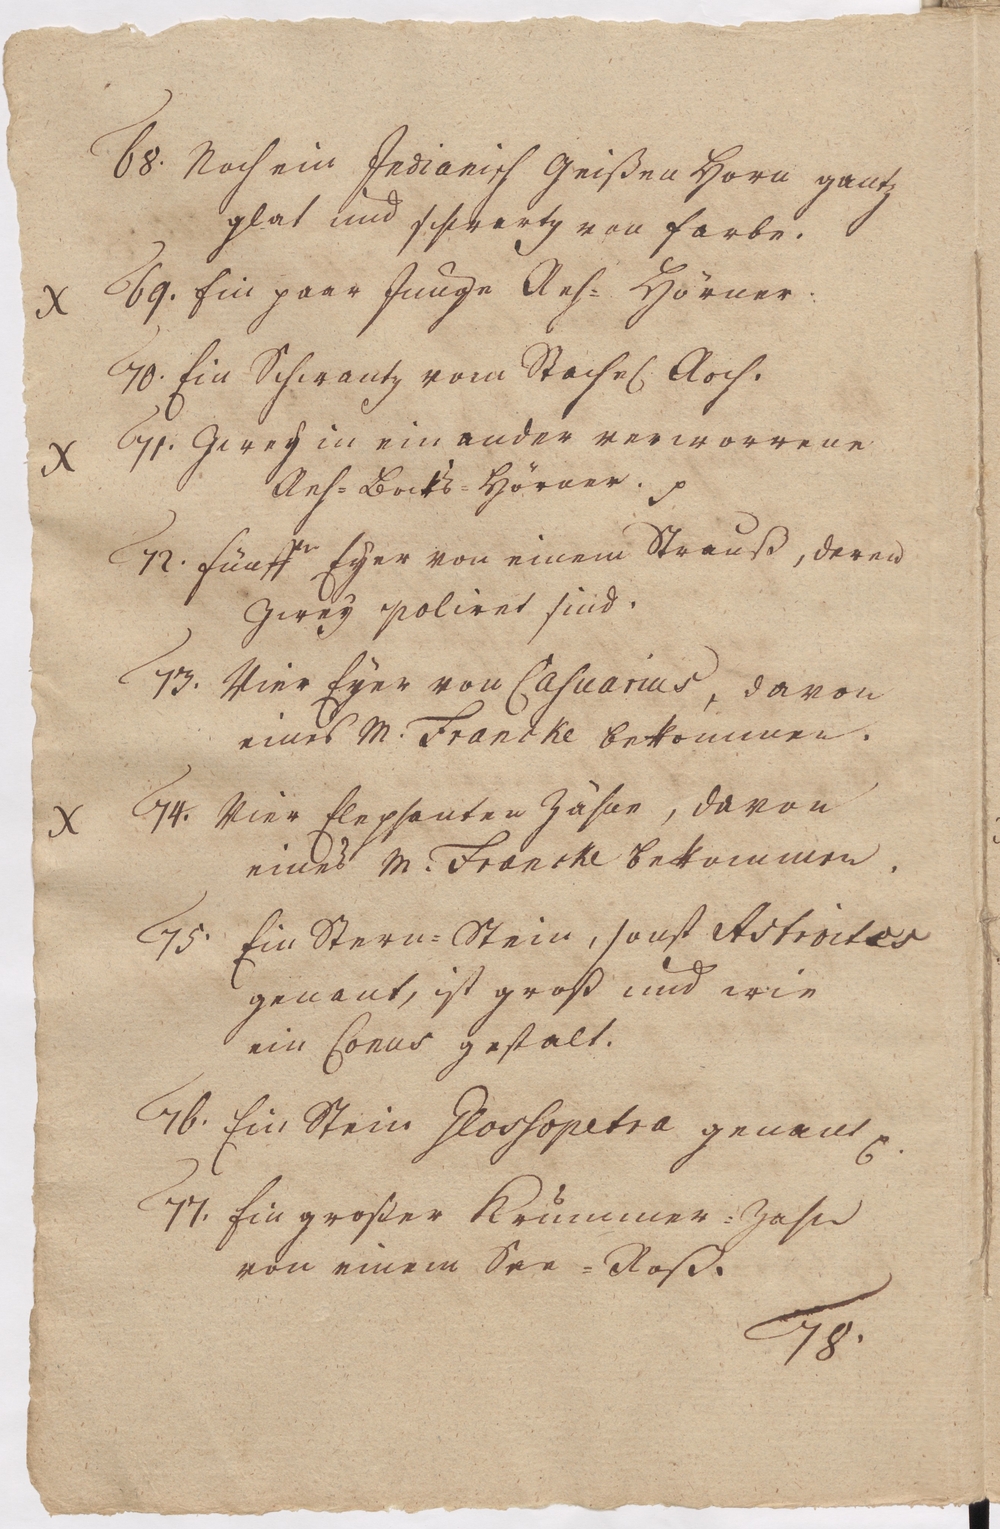 68. Noch ein Indianisch Geißen Horn gantz
glat und schwartz von farbe.
X 69. Ein paar Junge Reh= Hörner.
70. Ein Schwantz vom Stachel Roch.
X 71. Zwey in ein ander verworrene
Reh=Bocks=Hörner.
72. fünff Eyer von einem Strauß, deren
Zwey poliret sind.
73. Vier Eyer von Casuarius, davon
eines M. Francke bekommen.
X 74. Vier Elephanten Zähne, davon
eines M. Francke bekommen.
75. Ein Stern=Stein, sonst Astroites
genant, ist groß und wie
ein Conus gestalt.
76. Ein Stein Glossopetra genant
77. Ein großer Krummer=Zahn
von einem See=Roß.
78.